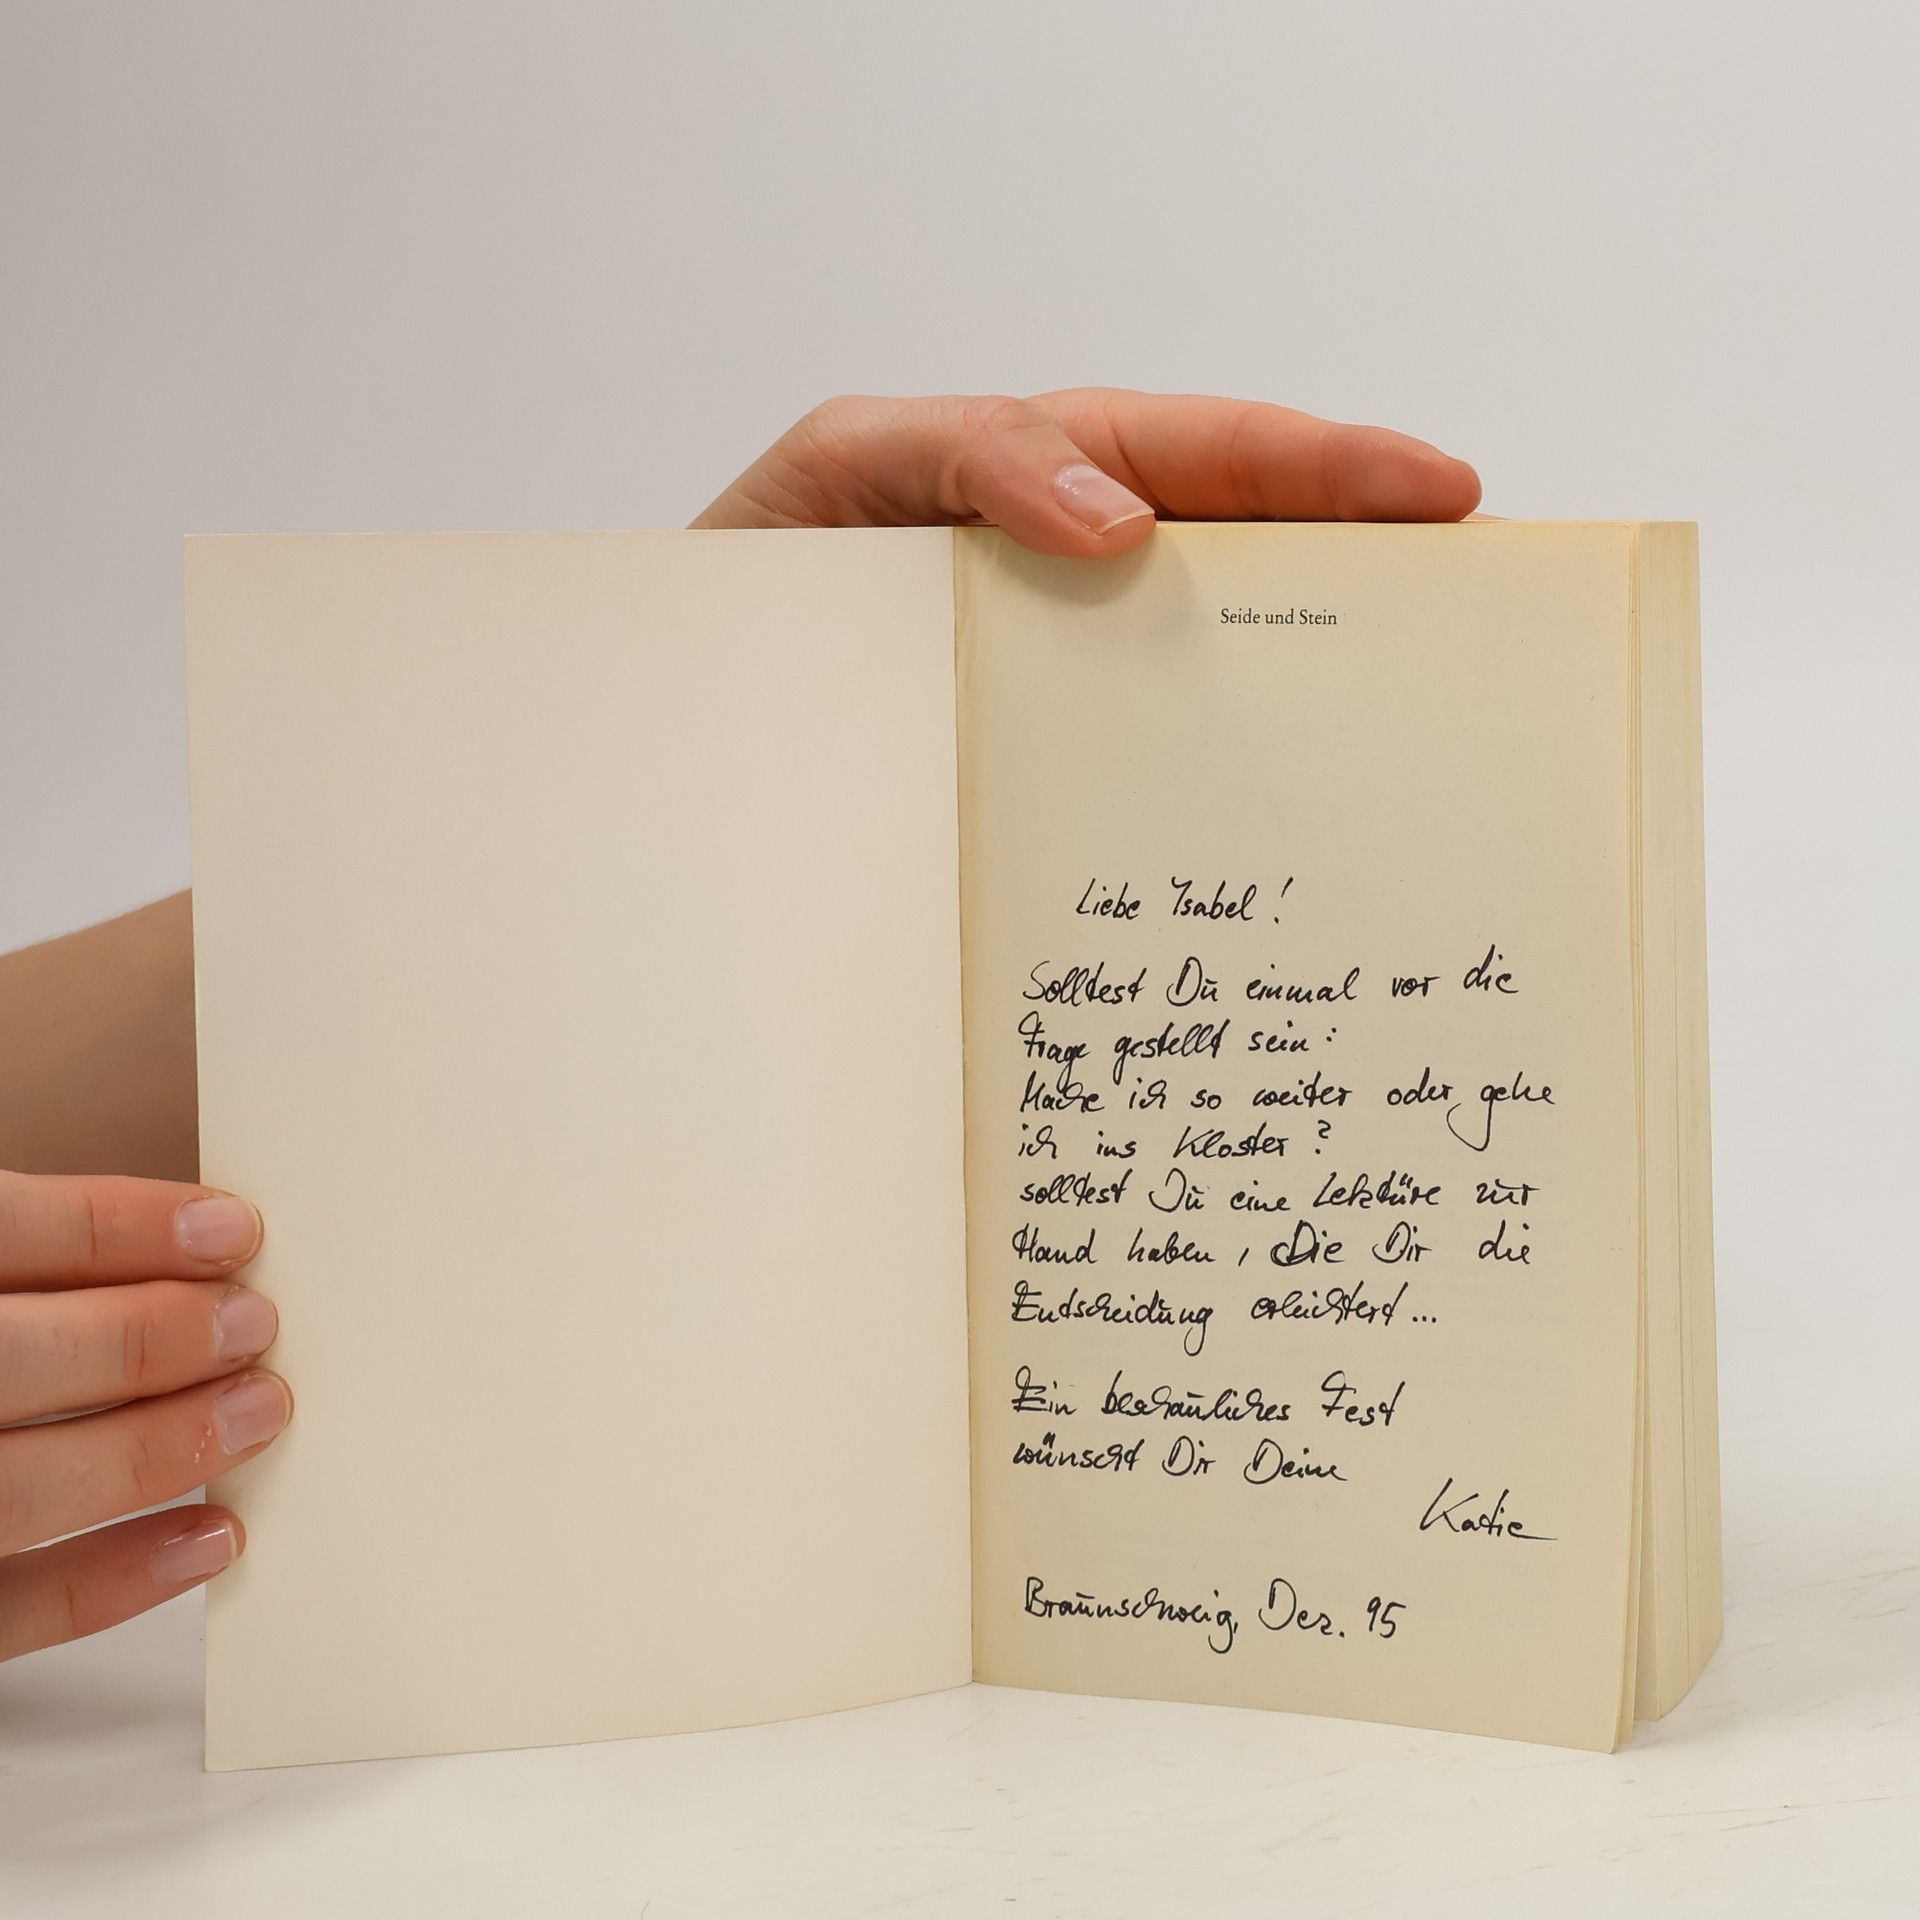 Seide und Stein
Liebe Isabel!
Solltest Du einmal vor die
Frage gestellt sein:
Mache ich so weiter oder gehe
ich ins Kloster?
solltest Du eine Lektüre zur
Hand haben, Die Dir die
Entscheidung erleichtert...
Ein beschauliches Fest
wünscht Dir Deine
Katie
Braunschweig, Dez. 95